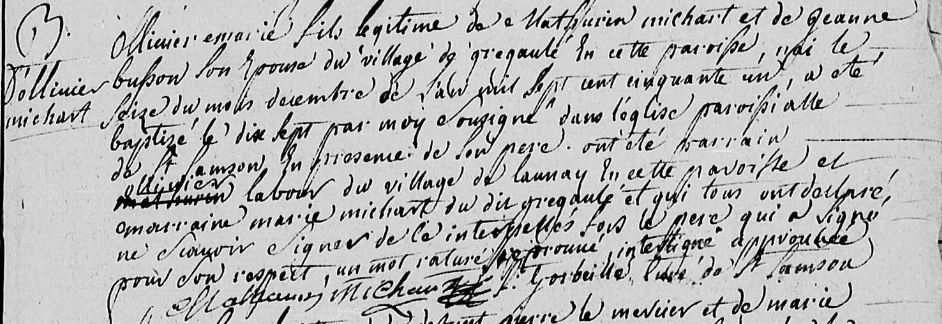 B.
D'ollivier
michart
Ollivier marié fils legitime de Mathurin michart et de geanne
busson son Epouse du village de gregaulé En cette paroisse, nai le
seize du mois decembre de l'an mil sept cent cinquante un, a été
baptizé le dix sept par moy sousigné dans l'église paroissialle
de St samson En presence de son pere. ont été parrain
ollivier
mathurin labour du village de launay En cette paroisse et
marraine marie michart du dit gregaulé et qui tous ont declaré,
ne scavoir signer de ce interpellés fors le pere qui a signé
pour son respect, un mot raturé reprouvé, interligne approuvée
Mathurin Michart Gorbeille Curé de St samson
pierre le mercier et de marie